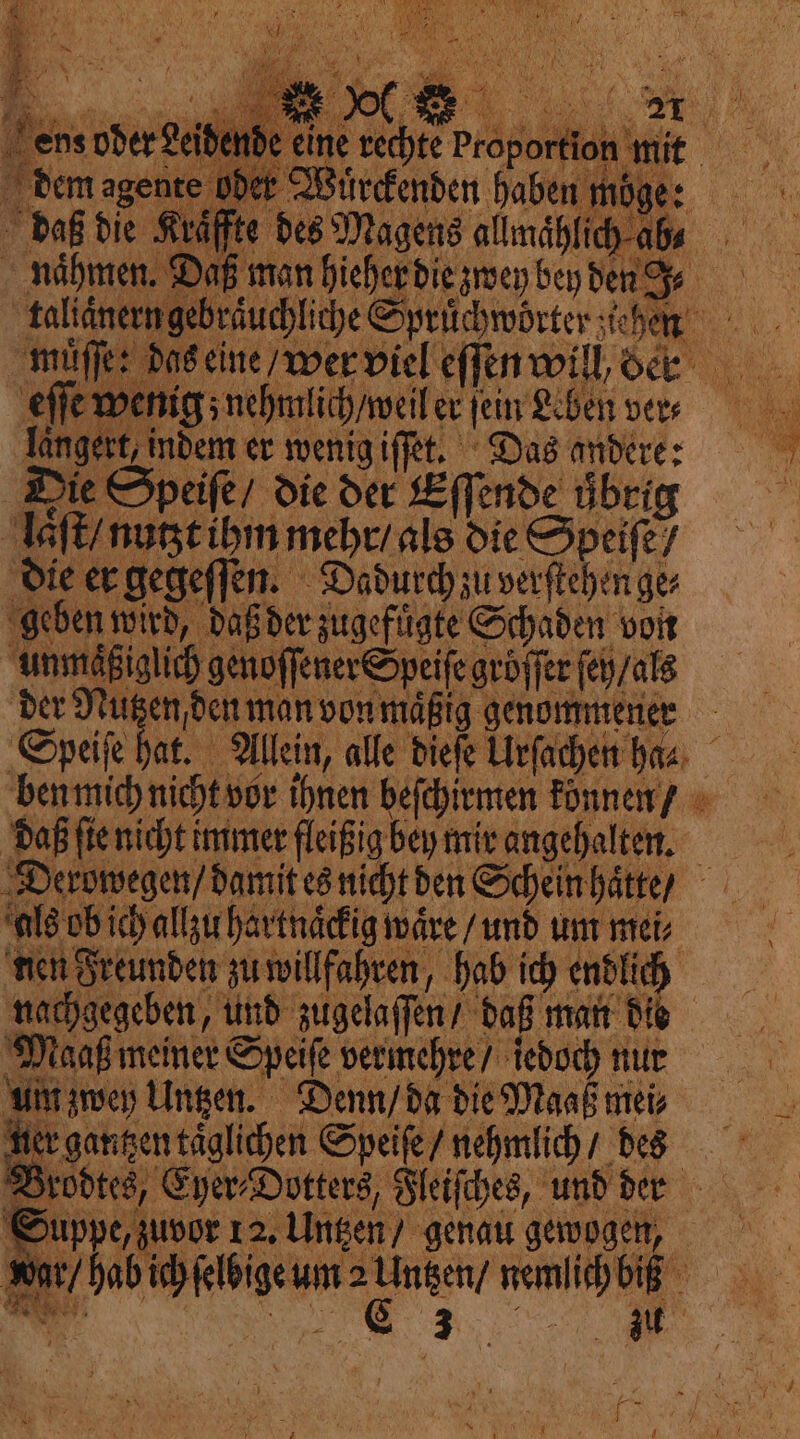 21
ens oder Leidende eine rechte Proportion mit
dem agente oder Wuͤrckenden haben moͤge:
daß die Kraͤffte des Magens allmaͤhlich ab⸗
naͤhmen. Daß man hieher die zwey bey den I⸗
taliaͤnern gebraͤuchliche Spruͤchwoͤrter ziehen
muͤſſe: das eine / wer viel eſſen will, der
eſſe wenig; nehmlich / weil er ſein Leben ver⸗
laͤngert, indem er wenig iſſet. Das andere:
Die Speiſe / die der Eſſende uͤbrig
laͤſt / nutzt ihm mehr / als die Speiſe /
die er gegeſſen. Dadurch zu verſtehen ge⸗
geben wird, daß der zugefuͤgte Schaden von
unmaͤßiglich genoſſener Speiſe groͤſſer ſey / als
der Nutzen, den man von maͤßig genommener
Speiſe hat. Allein, alle dieſe Urſachen ha⸗
ben mich nicht vor ihnen beſchirmen koͤnnen /
daß ſie nicht immer fleißig bey mir angehalten.
Derowegen / damit es nicht den Schein haͤtte /
als ob ich allzu hartnaͤckig waͤre / und um mei⸗
nen Freunden zu willfahren, hab ich endlich
nachgegeben, und zugelaſſen / daß man die
Maaß meiner Speiſe vermehre / iedoch nur
um zwey Untzen. Denn / da die Maaß mei⸗
ner gantzen taͤglichen Speiſe / nehmlich / des
Brodtes, Eyer⸗Dotters, Fleiſches, und der
Suppe, zuvor 12. Untzen / genau gewogen,
war / hab ich ſelbige um 2 Untzen / nemlich biß
C 3 zu